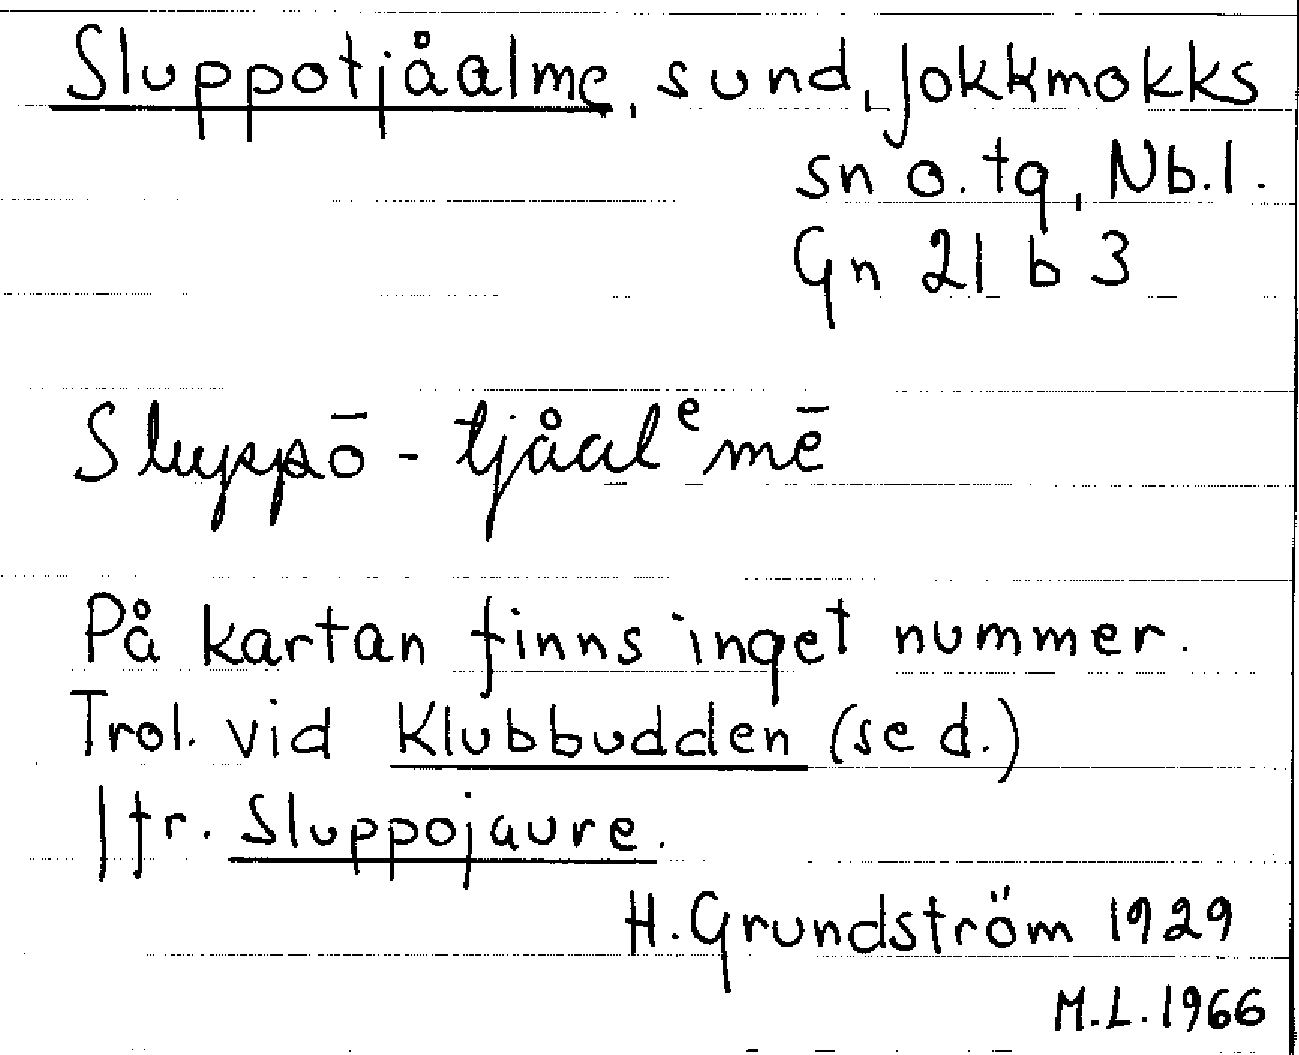 Sluppotjåalme, sund, Jokkmokks
sn o. tg, Nb.l.
Gn 21 b 3
Sluppō - tjåalᵉmē
På kartan finns inget nummer.
Trol. vid Klubbudden (se d.)
Jfr. Sluppojaure.
H. Grundström 1929
M.L. 1966